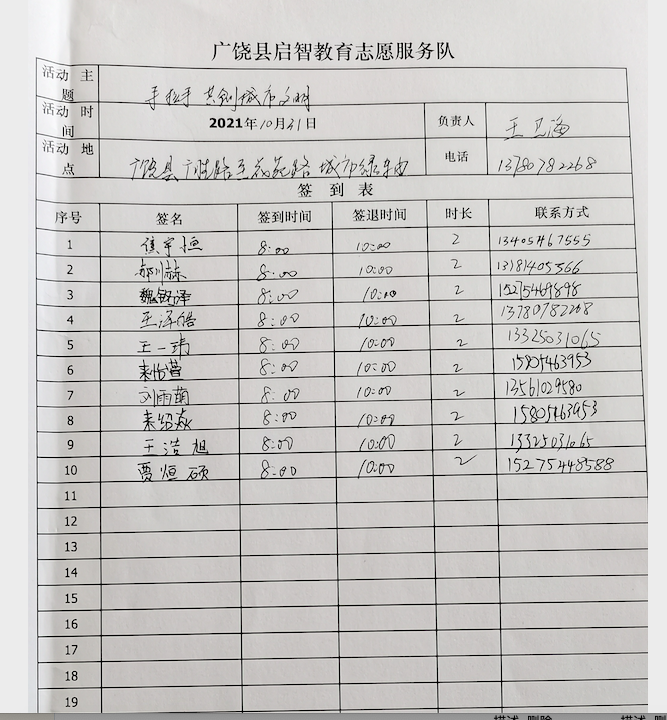 广饶县启智教育志愿服务队
活动主题 手拉手 共创城市文明
活动时间 2021年10月31日 负责人 王卫海
活动地点 广饶县 城市绿 电话 13780782268
签到表
序号 签名 签到时间 签退时间 时长 联系方式
1 侯宇恒 8:00 10:00 2 13405467555
2 8:00 10:00 2 13181405366
3 魏铭泽 8:00 10:00 2 15275469898
4 王泽皓 8:00 10:00 2 13780782268
5 王一玮 8:00 10:00 2 13325031065
6 8:00 10:00 2 15805463953
7 刘雨萌 8:00 10:00 2 13561029580
8 8:00 10:00 2 15805463953
9 王浩旭 8:00 10:00 2 13325031065
10 贾烜硕 8:00 10:00 2 15275448588
11
12
13
14
15
16
17
18
19